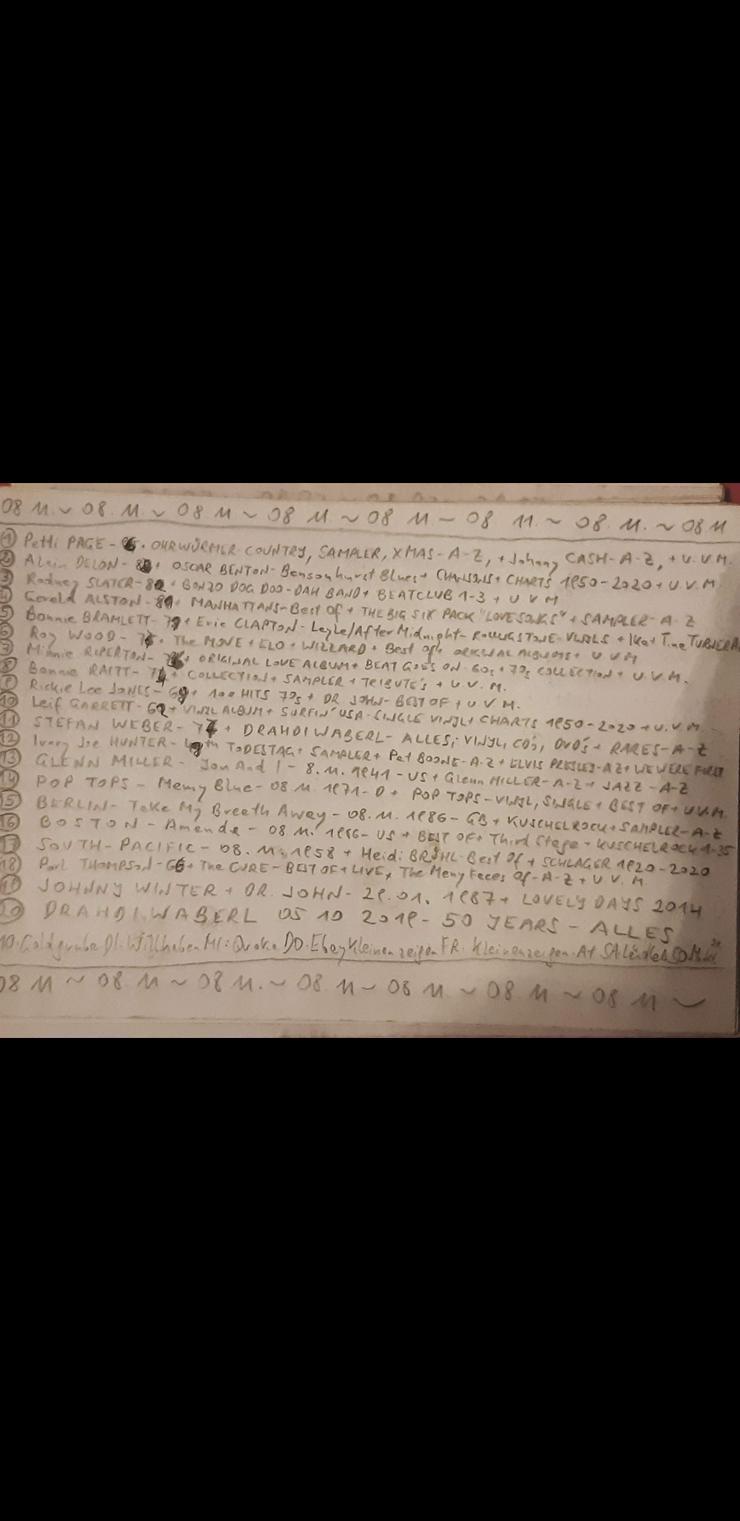 08 11. ~ 08. 11 ~ 08 11 ~ 08 11 ~ 08 11 ~ 08 11. ~ 08. 11. ~ 08 11
① Patti PAGE - + OHRWÜRMER COUNTRY, SAMPLER, XMAS - A-Z, + Johnny CASH - A-Z, + U.V.M.
② Alain DELON - + OSCAR BENTON - Bensonhurst Blues + CHANSONS + CHARTS 1950-2020 + U.V.M
③ Rodney SLATER - 82 + BONZO DOG DOO-DAH BAND + BEATCLUB 1-3 + U V M
④ Gerald ALSTON - + MANHATTANS - Best Of + THE BIG SIX PACK "LOVESONGS" + SAMPLER - A-Z
⑤ Bonnie BRAMLETT - + Eric CLAPTON - Layla/After Midnight - ROLLINGSTONE - VINYLS + Ike + Tina TURNER
⑥ Roy WOOD - + The MOVE + ELO + WIZZARD + Best Of + ORIGINAL ALBUMS + U V M
⑦ Minnie RIPERTON - + ORIGINAL LOVE ALBUM + BEAT GOES ON - 60s + 70s COLLECTION + U.V.M.
⑧ Bonnie RAITT - + COLLECTION + SAMPLER + TRIBUTE's + U.V.M.
⑨ Rickie Lee JONES - + 100 HITS 70s + DR JOHN - BEST OF + U V M.
⑩ Leif GARRETT - 62 + VINYL ALBUM + SURFIN' USA - SINGLE VINYL + CHARTS 1950-2020 + U.V.M
⑪ STEFAN WEBER - + DRAHDIWABERL - ALLES, VINYL, CD's, DVD's + RARES - A-Z
⑫ Ivory Joe HUNTER - TODESTAG + SAMPLER + Pat BOONE - A-Z + ELVIS PRESLEY - AZ + WE WERE FIRST
⑬ GLENN MILLER - And I - 8. 11. 1941 - US + Glenn MILLER - A-Z + JAZZ - A-Z
⑭ POP TOPS - Mamy Blue - 08 11. 1971 - D + POP TOPS - VINYL, SINGLE + BEST OF + U.V.M.
⑮ BERLIN - Take My Breath Away - 08. 11. 1986 - GB + KUSCHELROCK + SAMPLER - A-Z
⑯ BOSTON - Amanda - 08 11. 1986 - US + BEST OF + Third Stage + KUSCHELROCK 1-35
⑰ SOUTH - PACIFIC - 08. 11. 1958 + Heidi BRÜHL - Best Of + SCHLAGER 1920-2020
⑱ Porl THOMPSON - + The CURE - BEST OF + LIVE, The Many Faces Of - A-Z + U V. M
⑲ JOHNNY WINTER + DR. JOHN - 29. 01. 1987 + LOVELY DAYS 2014
⑳ DRAHDIWABERL 05 10 2019 - 50 YEARS - ALLES
MO. Goldgrube DI. Willhaben MI: Quoka DO. EbayKleinanzeigen FR. Kleinanzeigen.At SA.
08 11 ~ 08. 11 ~ 08 11. ~ 08 11 ~ 08 11 ~ 08 11 ~ 08 11 ~